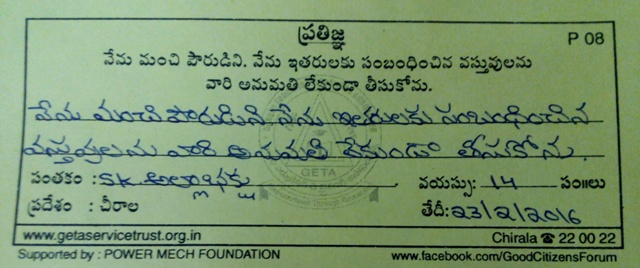 ప్రతిజ్ఞ
P 08
నేను మంచి పౌరుడిని. నేను ఇతరులకు సంబంధించిన వస్తువులను
వారి అనుమతి లేకుండా తీసుకోను.
నేను మంచి పౌరుడిని నేను ఇతరులకు సంబంధించిన
వస్తువులను వారి అనుమతి లేకుండా తీసుకోను.
GETA
సంతకం : SK అల్లాభక్షు వయస్సు: 14 సం॥లు
ప్రదేశం : చీరాల తేదీ: 23/2/2016
www.getaservicetrust.org.in Chirala ☎ 22 00 22
Supported by : POWER MECH FOUNDATION www.facebook.com/GoodCitizensForum